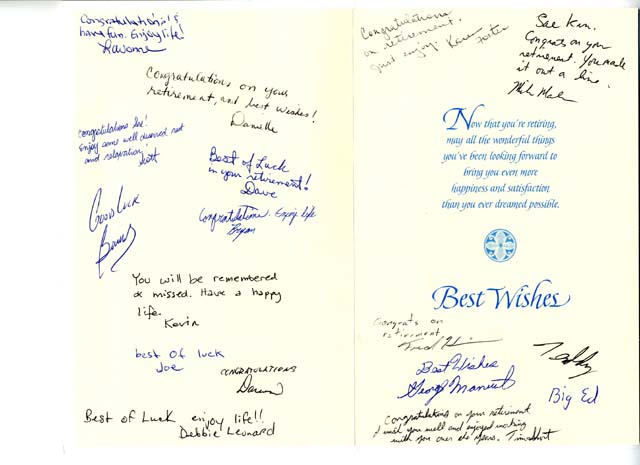 Congratulation's! &
have fun. Enjoy life!
LaVonne
Congratulations on your
retirement, and best wishes!
Danielle
Congratulations
Enjoy some well deserved rest
and relaxation!
Scott
Best of Luck
in your retirement!
Dave
Good Luck
Congratulations. Enjoy life
Bryan
You will be remembered
& missed. Have a happy
life.
Kevin
best of luck
Joe
CONGRATULATIONS
Best of Luck enjoy life!!
Debbie Leonard
Congratulations
on retirement.
Just enjoy. Karen Foster
Sae Kim.
Congrats on your
retirement. You made
it out a live.
Now that you're retiring,
may all the wonderful things
you've been looking forward to
bring you even more
happiness and satisfaction
than you ever dreamed possible.
Best Wishes
Congrats on
retirement
Fred
Teddy
Best Wishes
George
Big Ed
Congratulations on your retirement
I wish you well and enjoyed working
with you over the years.